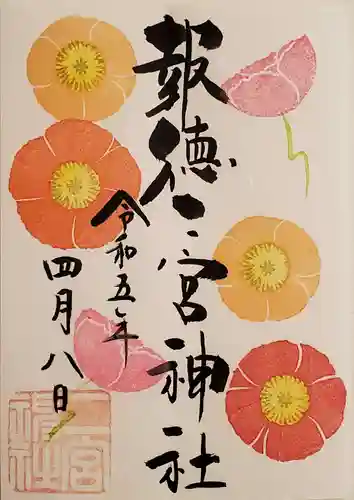 報徳二宮神社
令和五年
四月八日
二宮
神社